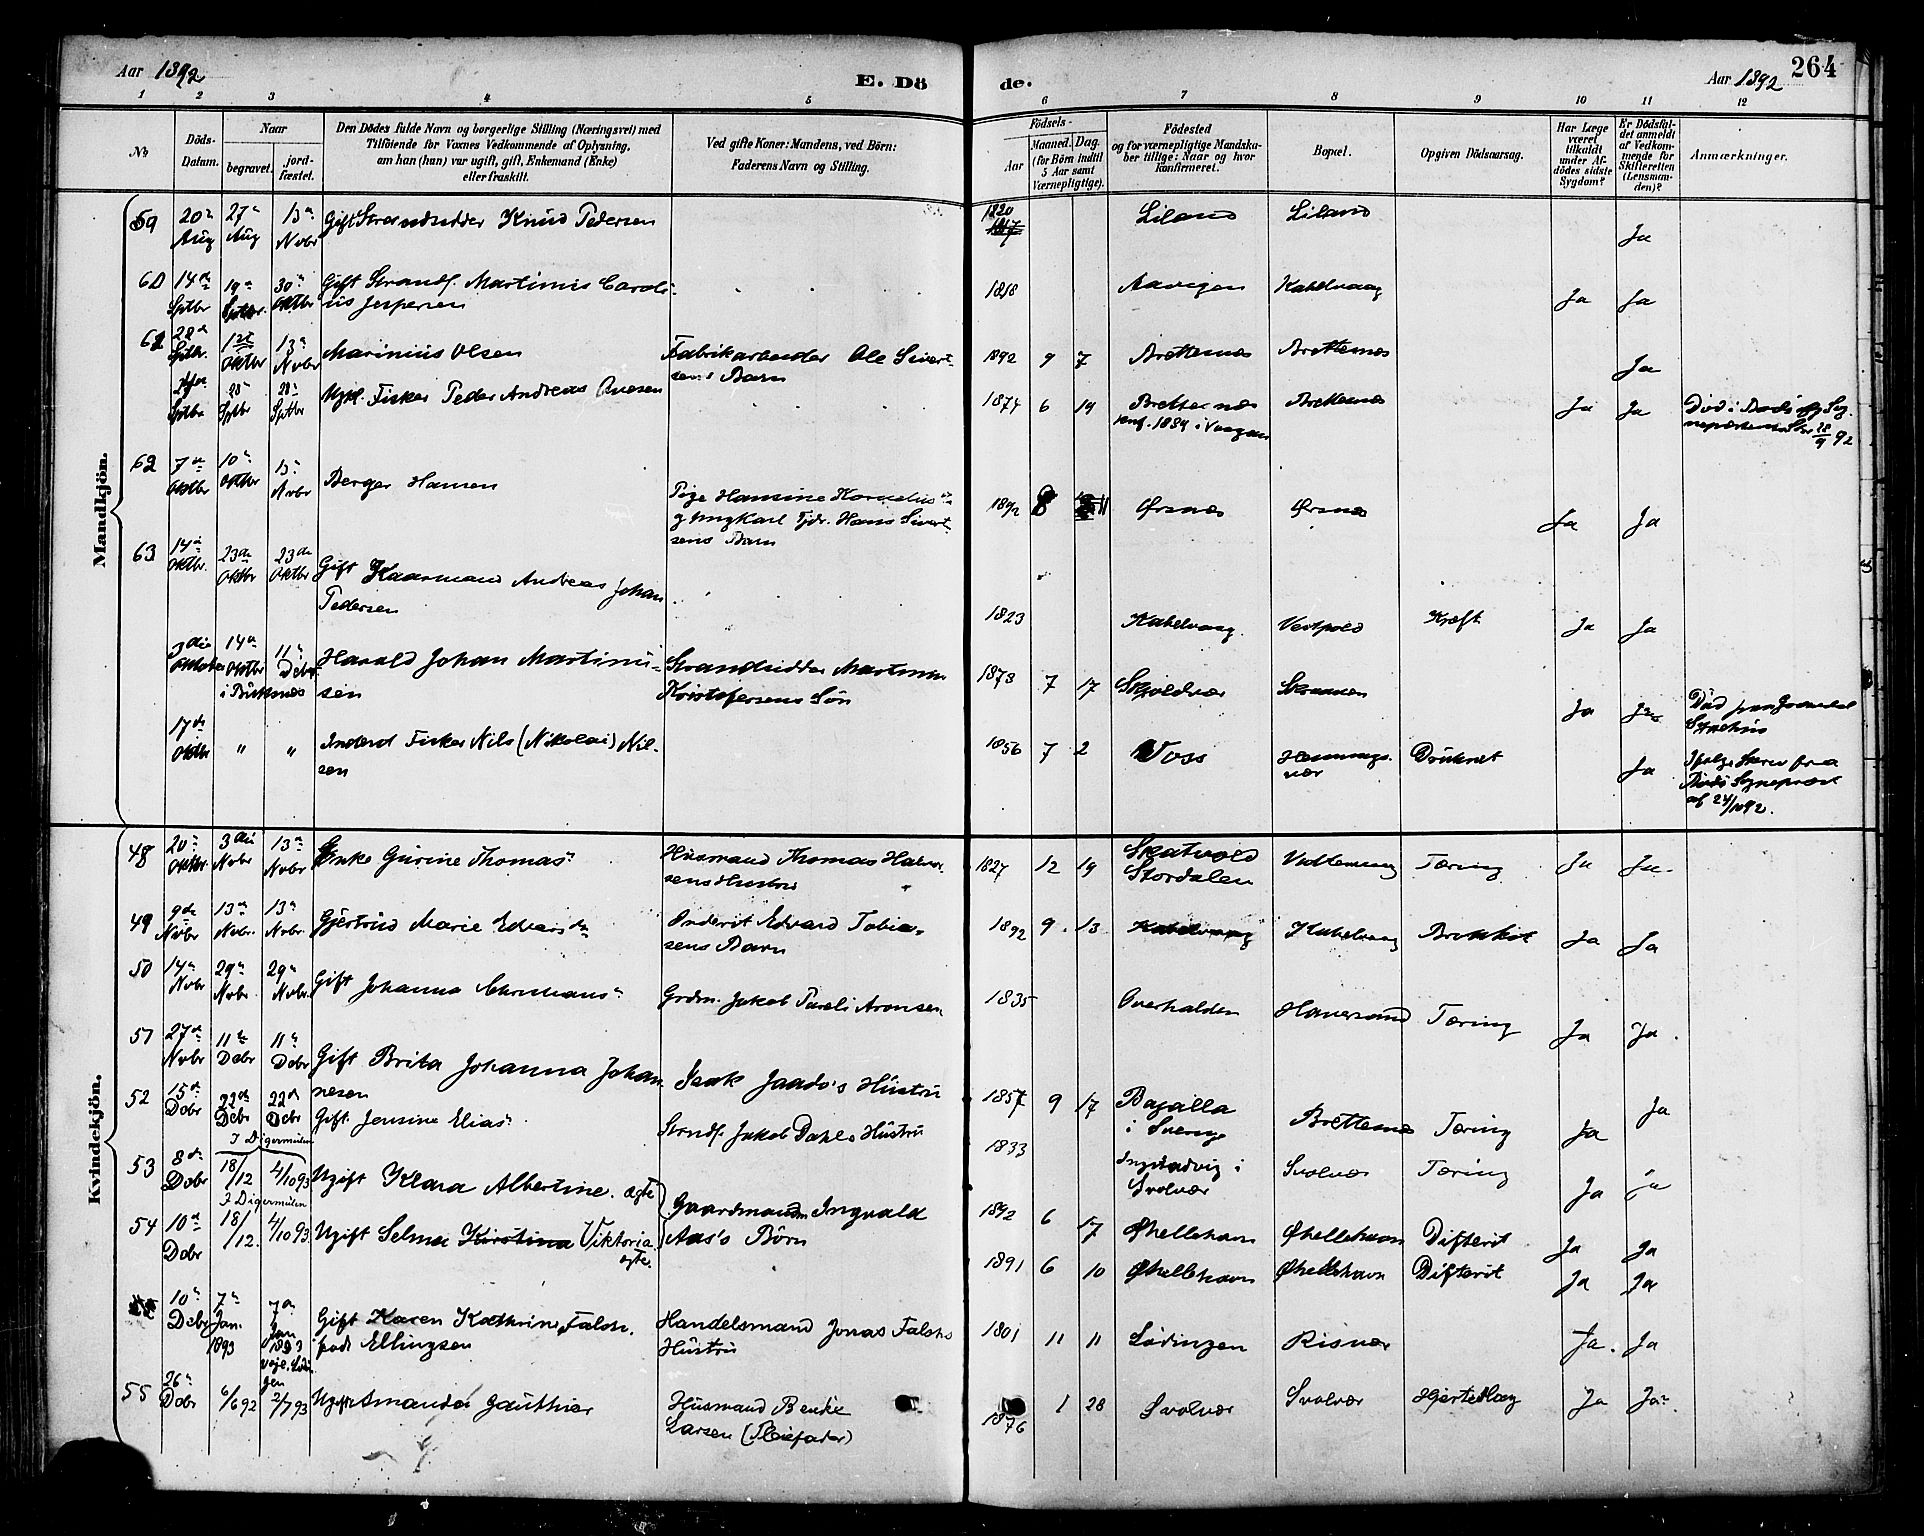 Aar 1892
E. Dö
de.
Aar 1892
264
1 2 3 4 5 6 7 8 9 10 11 12
No
Döds-
Datum.
Naar
begravet.
jord-
fæstet.
Den Dödes fulde Navn og borgerlige Stilling (Næringsvei) med
Tilföiende for Voxnes Vedkommende af Oplysning,
om han (hun) var ugift, gift, Enkemand (Enke)
eller fraskilt.
Ved gifte Koner: Mandens, ved Börn:
Faderens Navn og Stilling.
Födsels-
Aar
Maaned. Dag.
(for Börn indtil
5 Aar samt
Værnepligtige).
Födested
og for værnepligtige Mandska-
ber tillige: Naar og hvor
konfirmeret.
Bopæl.
Opgiven Dödsaarsag.
Har Læge
været
tilkaldt
under Af-
dödes sidste
Sygdom?
Er Dödsfal-
det anmeldt
af Vedkom-
mende for
Skifteretten
(Lensman-
den)?
Anmærkninger.
Mandkjön.
59 20de Aug 27de Aug 13de Nvbr Gift Strandsidder Knud Pedersen 1820 Liland Liland Ja
60 14de Sptbr 19de Sptbr. 30te Oktbr Gift Strandf. Martinus Caroli-
nus Jespersen 1818 Aavigen Kabelvaag Ja Ja
61 28de Sptbr. 1ste Oktbr 13de Nvbr Marinius Olsen Fabrikarbeider Ole Sivert-
sens Barn 1892 9 7 Brettesnes Brettesnes Ja
Sptbr 28de Sptbr 28de Sptbr Ugft. Fisker Peder Andreas Ovesen 1874 6 19 Brettesnes
konf. 1889 i Vaagan Brettesnes Ja Ja Död i Bodö
62 7de Oktbr 10de Oktbr 13de Nvbr Berger Hansen Pige Hansine Kornelius
og Ungkarl Fjdr. Hans Sivert-
sens Barn 1892 8 11 Örsnes Örsnes Ja Ja
63 14de Oktbr. 23de Oktbr 23de Oktbr Gift Kaarmand Andreas Johan
Pedersen 1823 Kabelvaag Vestpold Kræft Ja Ja
3die Oktober 14de Oktbr
i Brettesnes 11te Debr. Harald Johan Martinus-
sen Strandsidder Martinus
Kristofersens Sön 1873 7 17 Skjoldvær Skraaven Ja Ja Död paa
Sygehus
17de Oktbr " " Inderst Fisker Nils (Nikolai) Nil-
sen 1856 7 2 Voss Hennings-
vær Druknet Ja Ifölge Skriv fra
Bodö Sognepræst
af 24/10 92.
Kvindekjön.
48 20de Oktbr. 3die Nvbr 13de Nvbr Enke Gurine Thomasdr Husmand Thomas Halvor-
sens Hustru 1827 12 19 Skatvold
Stordalen Ja Ja Tæring
49 9de Nvbr 13de Nvbr. 13de Nvbr. Gjertrud Marie Edvardsdr Inderst Edvard Tobia-
sens Barn 1892 9. 13 Kabelvaag Kabelvaag Ja Ja
50 14de Nvbr 29de Nvbr. 29de Nvbr. Gift Johanna Christiansdr Grdm. Jakob Pareli Aronsen 1835 Overhalden Haversand Tæring Ja Ja.
51 27de Nvbr 11te Debr 11te Debr Gift Brita Johanna Johan
nesen Isak Jaado's Hustru 1857 9 17 Bajalla
i Sverige Brettesnes Tæring Ja Ja
52 15de Debr 22de Debr 22de Debr Gift Jensine Eliasdr Strndf. Jakob Dahls Hustru 1833
Svolvær Svolvær Tæring Ja Ja
I Digermulen
53 8de Debr 18/12 4/10 93 Ugift Klara Albertine. ægte Gaardmand Ingvald
Aas's Börn 1892 6 17 Öhellehavn Öhellehavn Difterit Ja Ja
I Digermulen
54 10de Debr 18/12. 4/10 93 Ugift Selma Kirstina Viktoria.
ægte. 1891 6 10 Öhellehavn Öhellehavn Difterit Ja Ja
10de Debr 7de Jan. 1893 7de Jan 1893 Gift Karen Kathrine Falsh.
född Ellingsen Handelsmand Jonas Falshs
Hustru 1801 11 11 Lödingen Risvær Ja. Ja
55 26de Debr 6/6 92 2/7 93 Ugift Amanda Gauthier Husmand Benke
Larsen (Pleiefader) 1876 1 28 Svolvær Svolvær Hjerteslag Ja Ja.